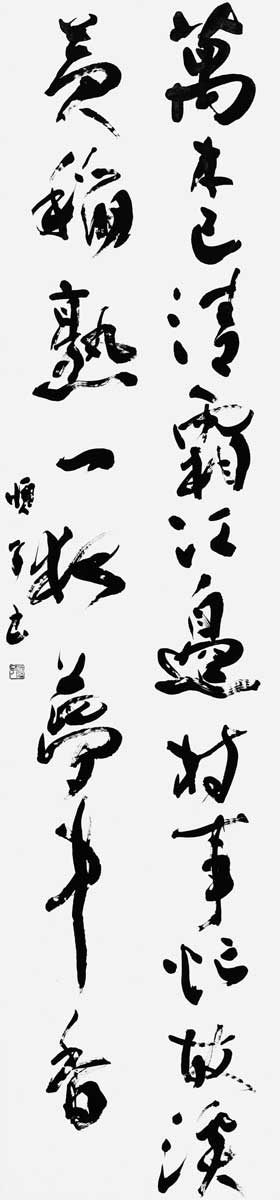 萬木已清霜江邊村事忙故溪
黃稻熟一夜夢中香
書